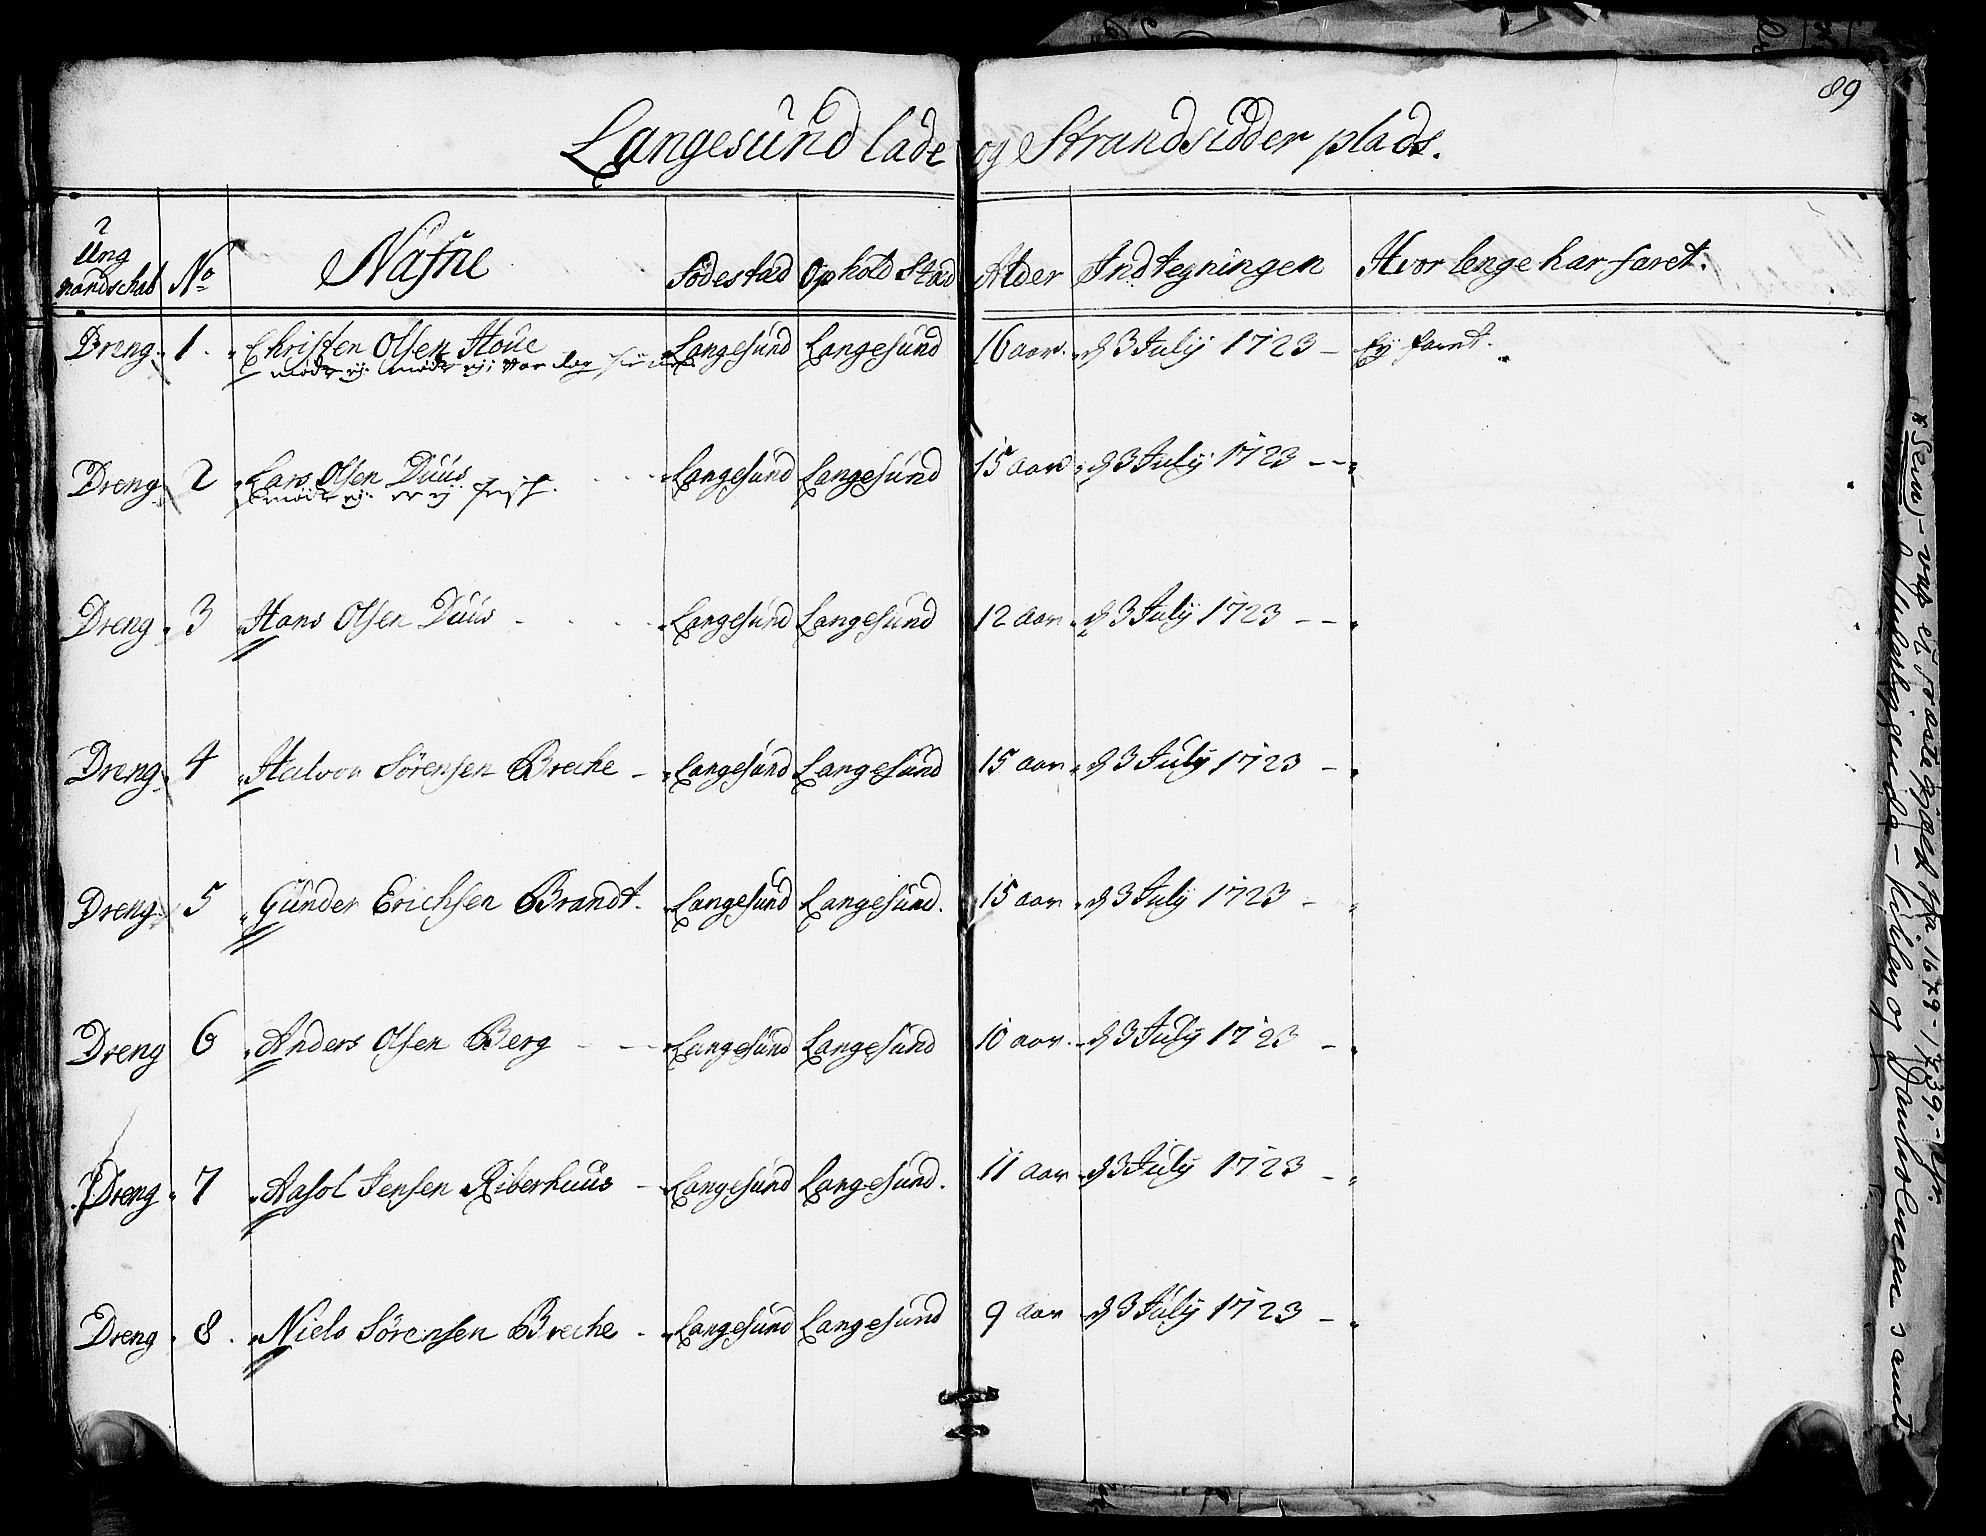 89
Langesund lade og Strandsidder plads.
Ung mandschab No Nafne Födestad Ophold Stad Alder Indtegningen Hvor lenge har faret.
Dreng 1. Christen Olsen Houe Langesund Langesund 16 aar. d 3 July 1723 – Ey faret.
mödt ej mödt ej
Dreng 2 Lars Olsen Duus Langesund Langesund 15 aar d 3 July 1723 – –
mödt ej er ej frisk.
Dreng 3 Hans Olsen Duus Langesund Langesund 12 aar d 3 July 1723 – –
Dreng 4 Halvor Sörensen Breche – Langesund Langesund 15 aar d 3 July 1723 –
Dreng 5 Gunder Erichsen Brandt. Langesund Langesund. 15 aar d 3 July 1723 –
Dreng 6 Anders Olsen Berg – – Langesund Langesund 10 aar. d 3 July 1723 –
Dreng 7 Aasol Jensen Riberhuus – Langesund Langesund. 11 aar d 3 July 1723 –
Dreng 8. Niels Sörensen Breche – Langesund Langesund 9 aar d 3 July 1723 –
ej 1679 - 1739. -
og samt